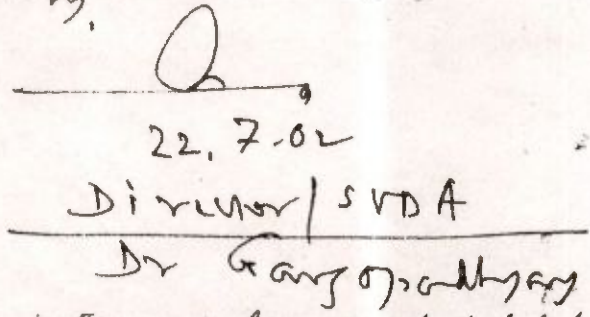 22.7.02
Director/SVDA
Dr Gangopadhyay